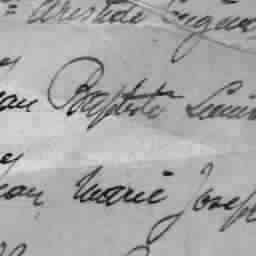 Aristide Eugène
Baptiste Louis
Jean Marie Joseph